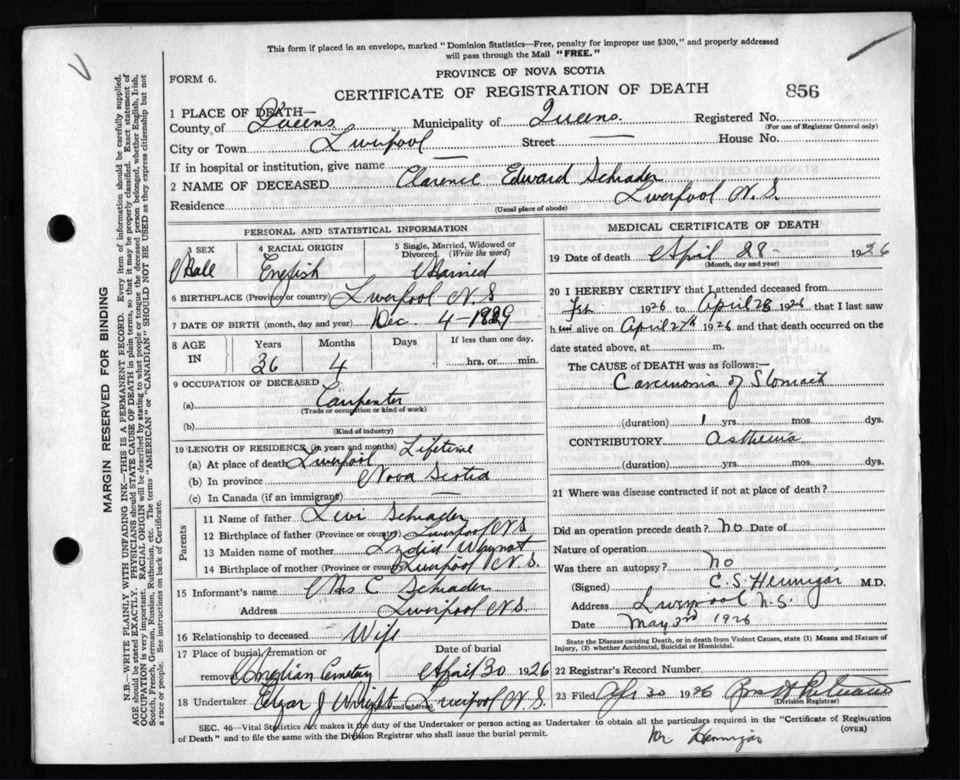 This form if placed in an envelope, marked "Dominion Statistics—Free, penalty for improper use $300," and properly addressed
will pass through the Mail "FREE."
PROVINCE OF NOVA SCOTIA
FORM 6.
CERTIFICATE OF REGISTRATION OF DEATH
856
1 PLACE OF DEATH—
County of Queens Municipality of Queens. Registered No.
(For use of Registrar General only)
City or Town Liverpool Street — House No.
If in hospital or institution, give name —
2 NAME OF DECEASED Clarence Edward Schrader
Residence Liverpool N.S.
(Usual place of abode)
PERSONAL AND STATISTICAL INFORMATION
3 SEX 4 RACIAL ORIGIN 5 Single, Married, Widowed or
Divorced. (Write the word)
Male English Married
6 BIRTHPLACE (Province or country) Liverpool N.S
7 DATE OF BIRTH (month, day and year) Dec. 4—1889
8 AGE
IN
Years Months Days If less than one day,
36 4 hrs. or min.
9 OCCUPATION OF DECEASED
(a) Carpenter
(Trade or occupation or kind of work)
(b)
(Kind of industry)
10 LENGTH OF RESIDENCE (in years and months) Lifetime
(a) At place of death Liverpool
(b) In province Nova Scotia
(c) In Canada (if an immigrant) —
Parents
11 Name of father Levi Schrader
12 Birthplace of father (Province or country) Liverpool N.S
13 Maiden name of mother Lydia Whynot
14 Birthplace of mother (Province or country) Liverpool N.S.
15 Informant's name Mrs C Schrader
Address Liverpool N.S.
16 Relationship to deceased Wife
17 Place of burial, cremation or Date of burial
removal Anglian Cemetery April 30 1926
18 Undertaker Elgar J Wright Liverpool N.S.
MEDICAL CERTIFICATE OF DEATH
19 Date of death April 28— 1926
(Month, day and year)
20 I HEREBY CERTIFY that I attended deceased from
Feb 1926 to April 28 1926 that I last saw
him alive on April 27th 1926 and that death occurred on the
date stated above, at m.
The CAUSE of DEATH was as follows:—
Carcinonia of Stomach
(duration) 1 yrs. mos. dys.
CONTRIBUTORY Asthenia
(duration) yrs. mos. dys.
21 Where was disease contracted if not at place of death?
Did an operation precede death? No Date of
Nature of operation
Was there an autopsy? No
(Signed) C.S. Hennigar M.D.
Address Liverpool N.S.
Date May 2nd 1926
State the Disease causing Death, or in death from Violent Causes, state (1) Means and Nature of
Injury, (2) whether Accidental, Suicidal or Homicidal.
22 Registrar's Record Number
23 Filed Apl 30 1926
(Division Registrar)
SEC. 46—Vital Statistics Act makes it the duty of the Undertaker or person acting as Undertaker to obtain all the particulars required in the "Certificate of Registration
of Death" and to file the same with the Division Registrar who shall issue the burial permit.
(OVER)
Mr Hennigar
MARGIN RESERVED FOR BINDING
N.B.—WRITE PLAINLY WITH UNFADING INK—THIS IS A PERMANENT RECORD. Every item of information should be carefully supplied.
AGE should be stated EXACTLY. PHYSICIANS should STATE CAUSE OF DEATH in plain terms, so that it may be properly classified. Exact statement of
OCCUPATION is very important. RACIAL ORIGIN will be described by stating to what people or tongue the deceased person belonged, whether English, Irish,
Scotch, French, German, Russian, Ruthenian, etc. The terms "AMERICAN" or "CANADIAN" SHOULD NOT BE USED as they express citizenship but not
a race or people. See instructions on back of Certificate.